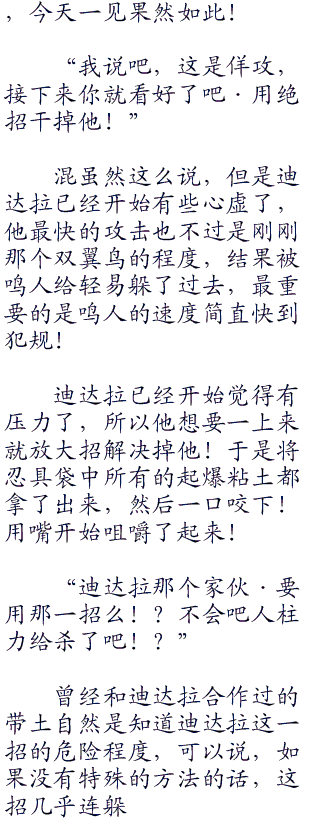 ，今天一见果然如此！
“我说吧，这是佯攻，
接下来你就看好了吧·用绝
招干掉他！”
混虽然这么说，但是迪
达拉已经开始有些心虚了，
他最快的攻击也不过是刚刚
那个双翼鸟的程度，结果被
鸣人给轻易躲了过去，最重
要的是鸣人的速度简直快到
犯规！
迪达拉已经开始觉得有
压力了，所以他想要一上来
就放大招解决掉他！于是将
忍具袋中所有的起爆粘土都
拿了出来，然后一口咬下！
用嘴开始咀嚼了起来！
“迪达拉那个家伙·要
用那一招么！？不会吧人柱
力给杀了吧！？”
曾经和迪达拉合作过的
带土自然是知道迪达拉这一
招的危险程度，可以说，如
果没有特殊的方法的话，这
招几乎连躲